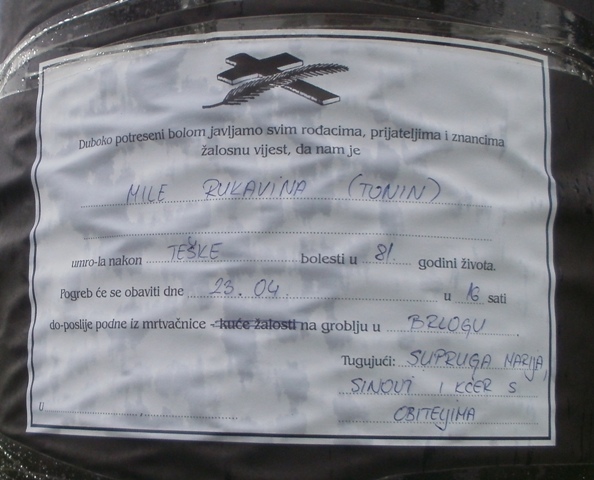 Duboko potreseni bolom javljamo svim rođacima, prijateljima i znancima
žalosnu vijest, da nam je
MILE RUKAVINA (TONIN)
umro-la nakon TEŠKE bolesti u 81. godini života.
Pogreb će se obaviti dne 23.04. u 16 sati
do-poslije podne iz mrtvačnice - kuće žalosti na groblju u BRLOGU.
Tugujući: SUPRUGA MARIJA,
SINOVI I KĆER S
OBITELJIMA
U